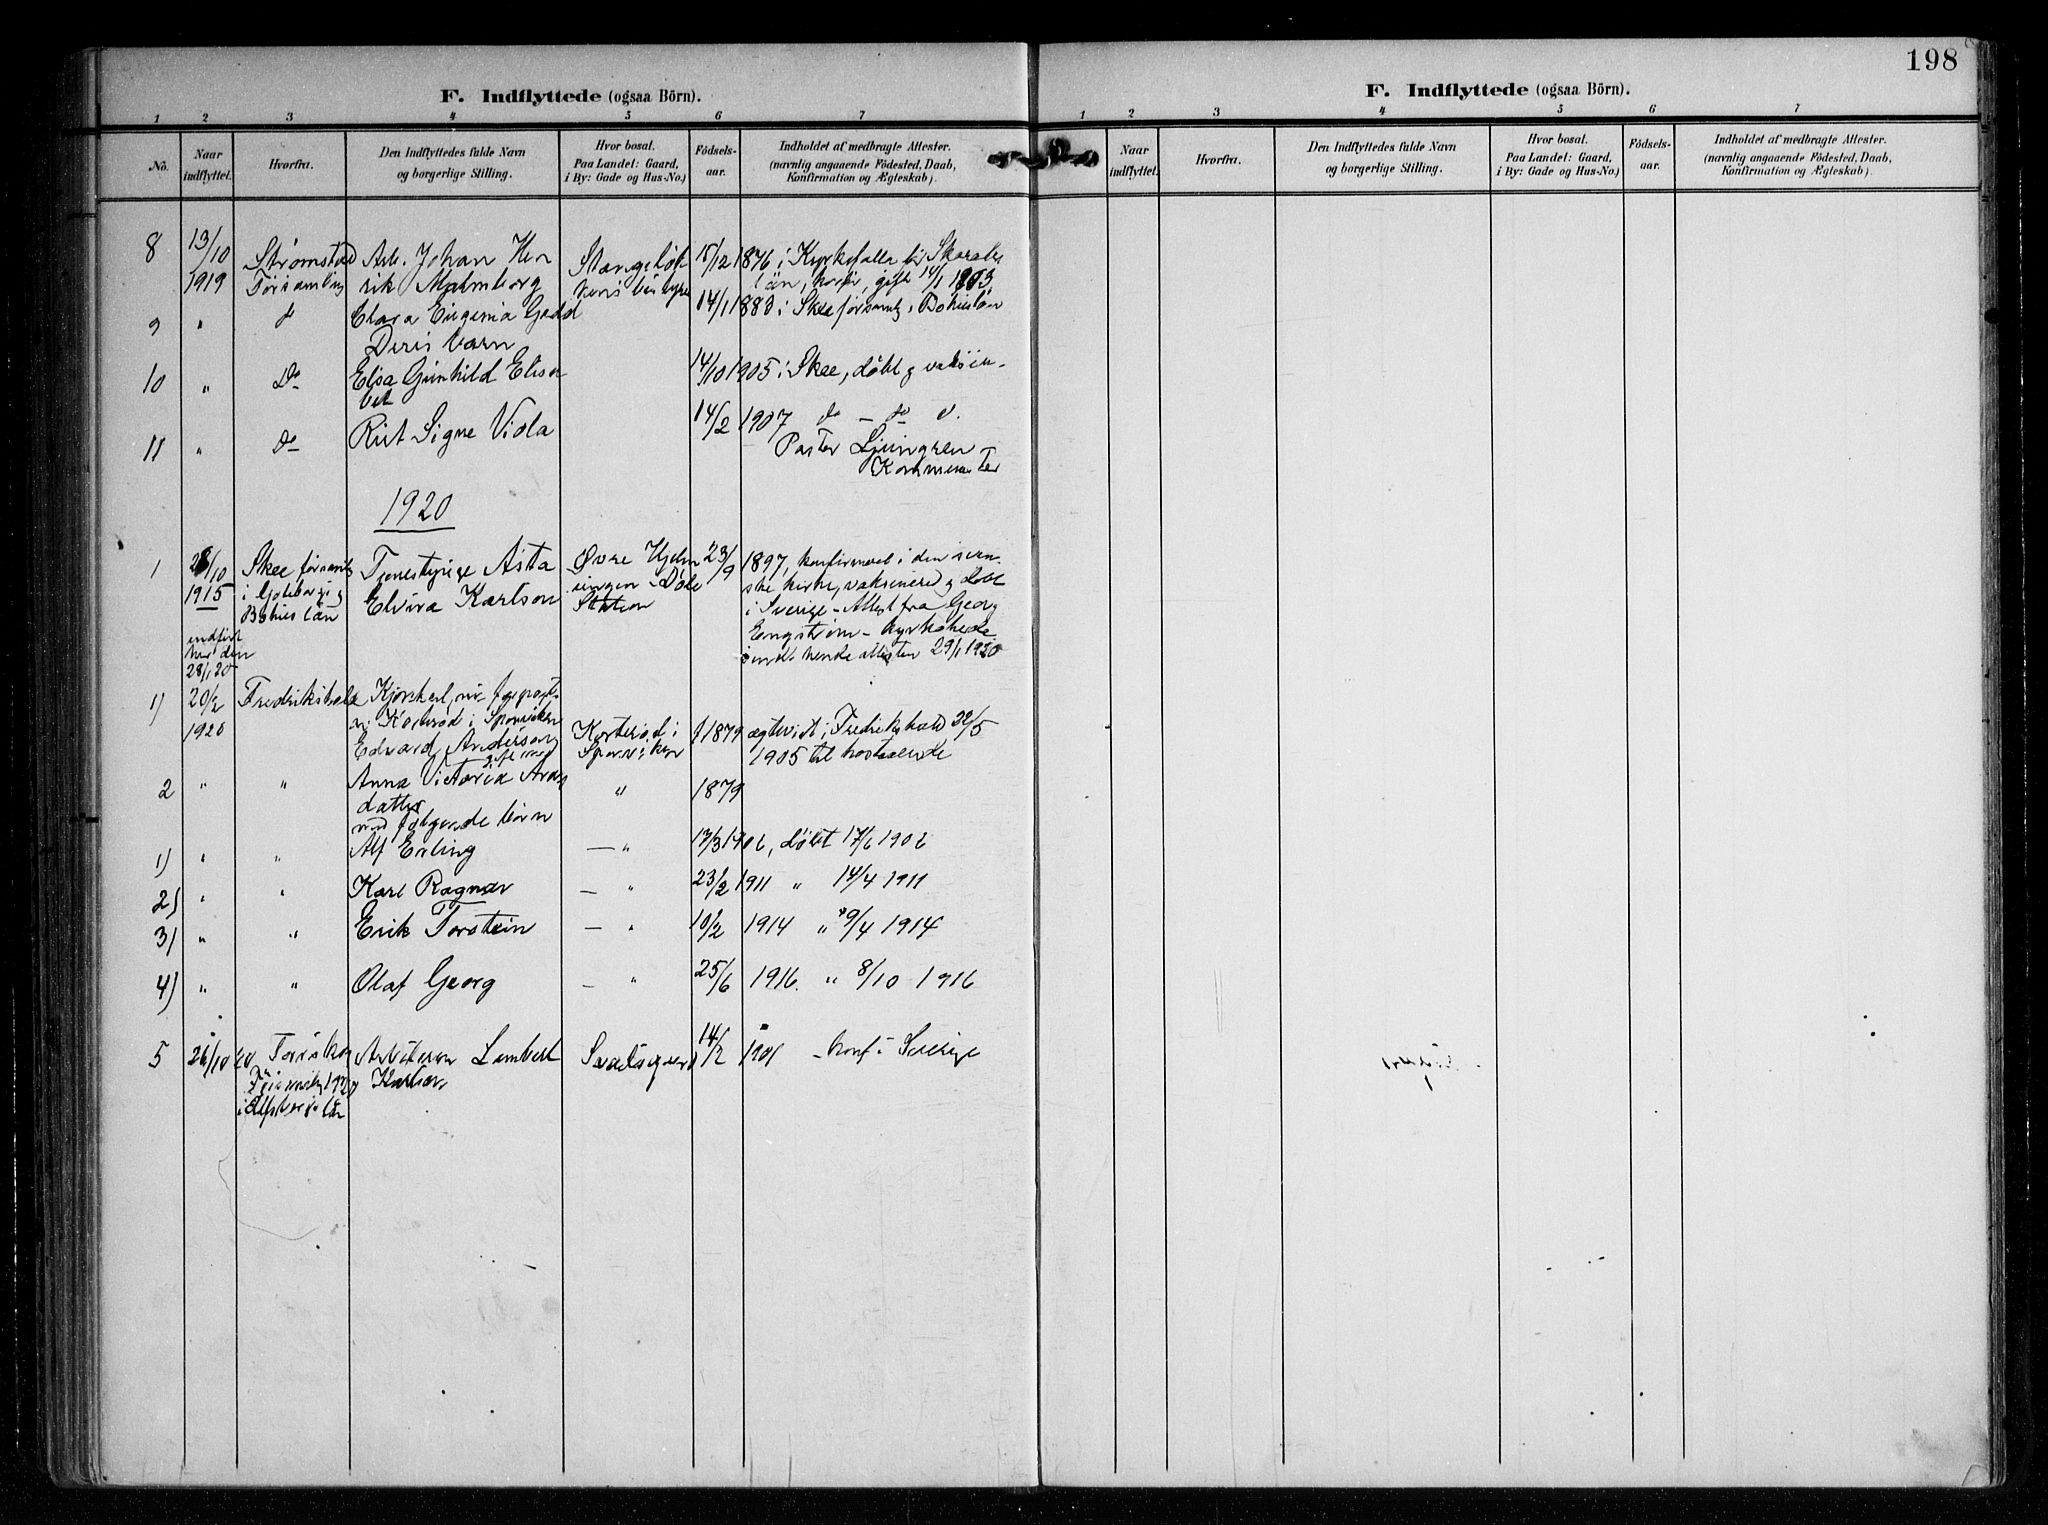 198
F. Indflyttede (ogsaa Börn).
1 2 3 4 5 6 7
No. Naar indflyttet. Hvorfra. Den Indflyttedes fulde Navn og borgerlige Stilling. Hvor bosat. Paa Landet: Gaard, i By: Gade og Hus-No.) Födsels-aar. Indholdet af medbragte Attester. (navnlig angaaende Födested, Daab, Konfirmation og Ægteskab).
8 13/10 1919 Strømstad Forsamling Arb. Johan Hen
rik Malmborg 15/12 1876 i Kyrkefalla Skarab.
län, gift 14/1 1903
9 " do Clara Eugenia Gedd 14/1 1883 i Skee forsaml. Bohuslän
Deres børn
10 " Do Elsa Gunhild Elisa
bet 14/10 1905 i Skee, døbt og vaksin-
11 " Do Rut Signe Viola 14/2 1907 do - do v.
Pastor Ljungren
Kommenster
1920
1 28/10 1915 Skee forsaml
i Göteborg og
Bohus län
indført
her den
28/1 20
Tjenestepige Asta
Elvira Karlson
Øvre Hjelm
ungen Døle
Station
23/9 1897, konfirmeret i den sven
ske kirke, vaksinered og døbt
i Sverige - Attest fra Georg
Engström - kyrkoherde
sendt hende attesten 29/1 1920
1) 20/2 1920 Fredrikshald
i Kosterød i Sponviken
Edvard Anderson
gift med
Kosterød i
Sponviken
f 1879 ægteviet i Fredrikshald 22/5
1905 til hosstaaende
2 " " Anna Victoria And
datter " 1879
med følgende børn
1) " " Alf Erling — " 17/3 1906, døbt 17/6 1906
2) " " Karl Ragnar — " 23/2 1911 " 14/4 1911
3) " " Erik Torstein — " 10/2 1914 " 9/4 1914
4) " " Olaf Georg — " 25/6 1916. " 8/10 1916
5 26/10 20 Torskog
i Elfsborgs län
Arbeteren Lambert
Karlson
14/2 1901 - konf i Sverige
F. Indflyttede (ogsaa Börn).
1 2 3 4 5 6 7
No. Naar indflyttet. Hvorfra. Den Indflyttedes fulde Navn og borgerlige Stilling. Hvor bosat. Paa Landet: Gaard, i By: Gade og Hus-No.) Födsels-aar. Indholdet af medbragte Attester. (navnlig angaaende Födested, Daab, Konfirmation og Ægteskab).